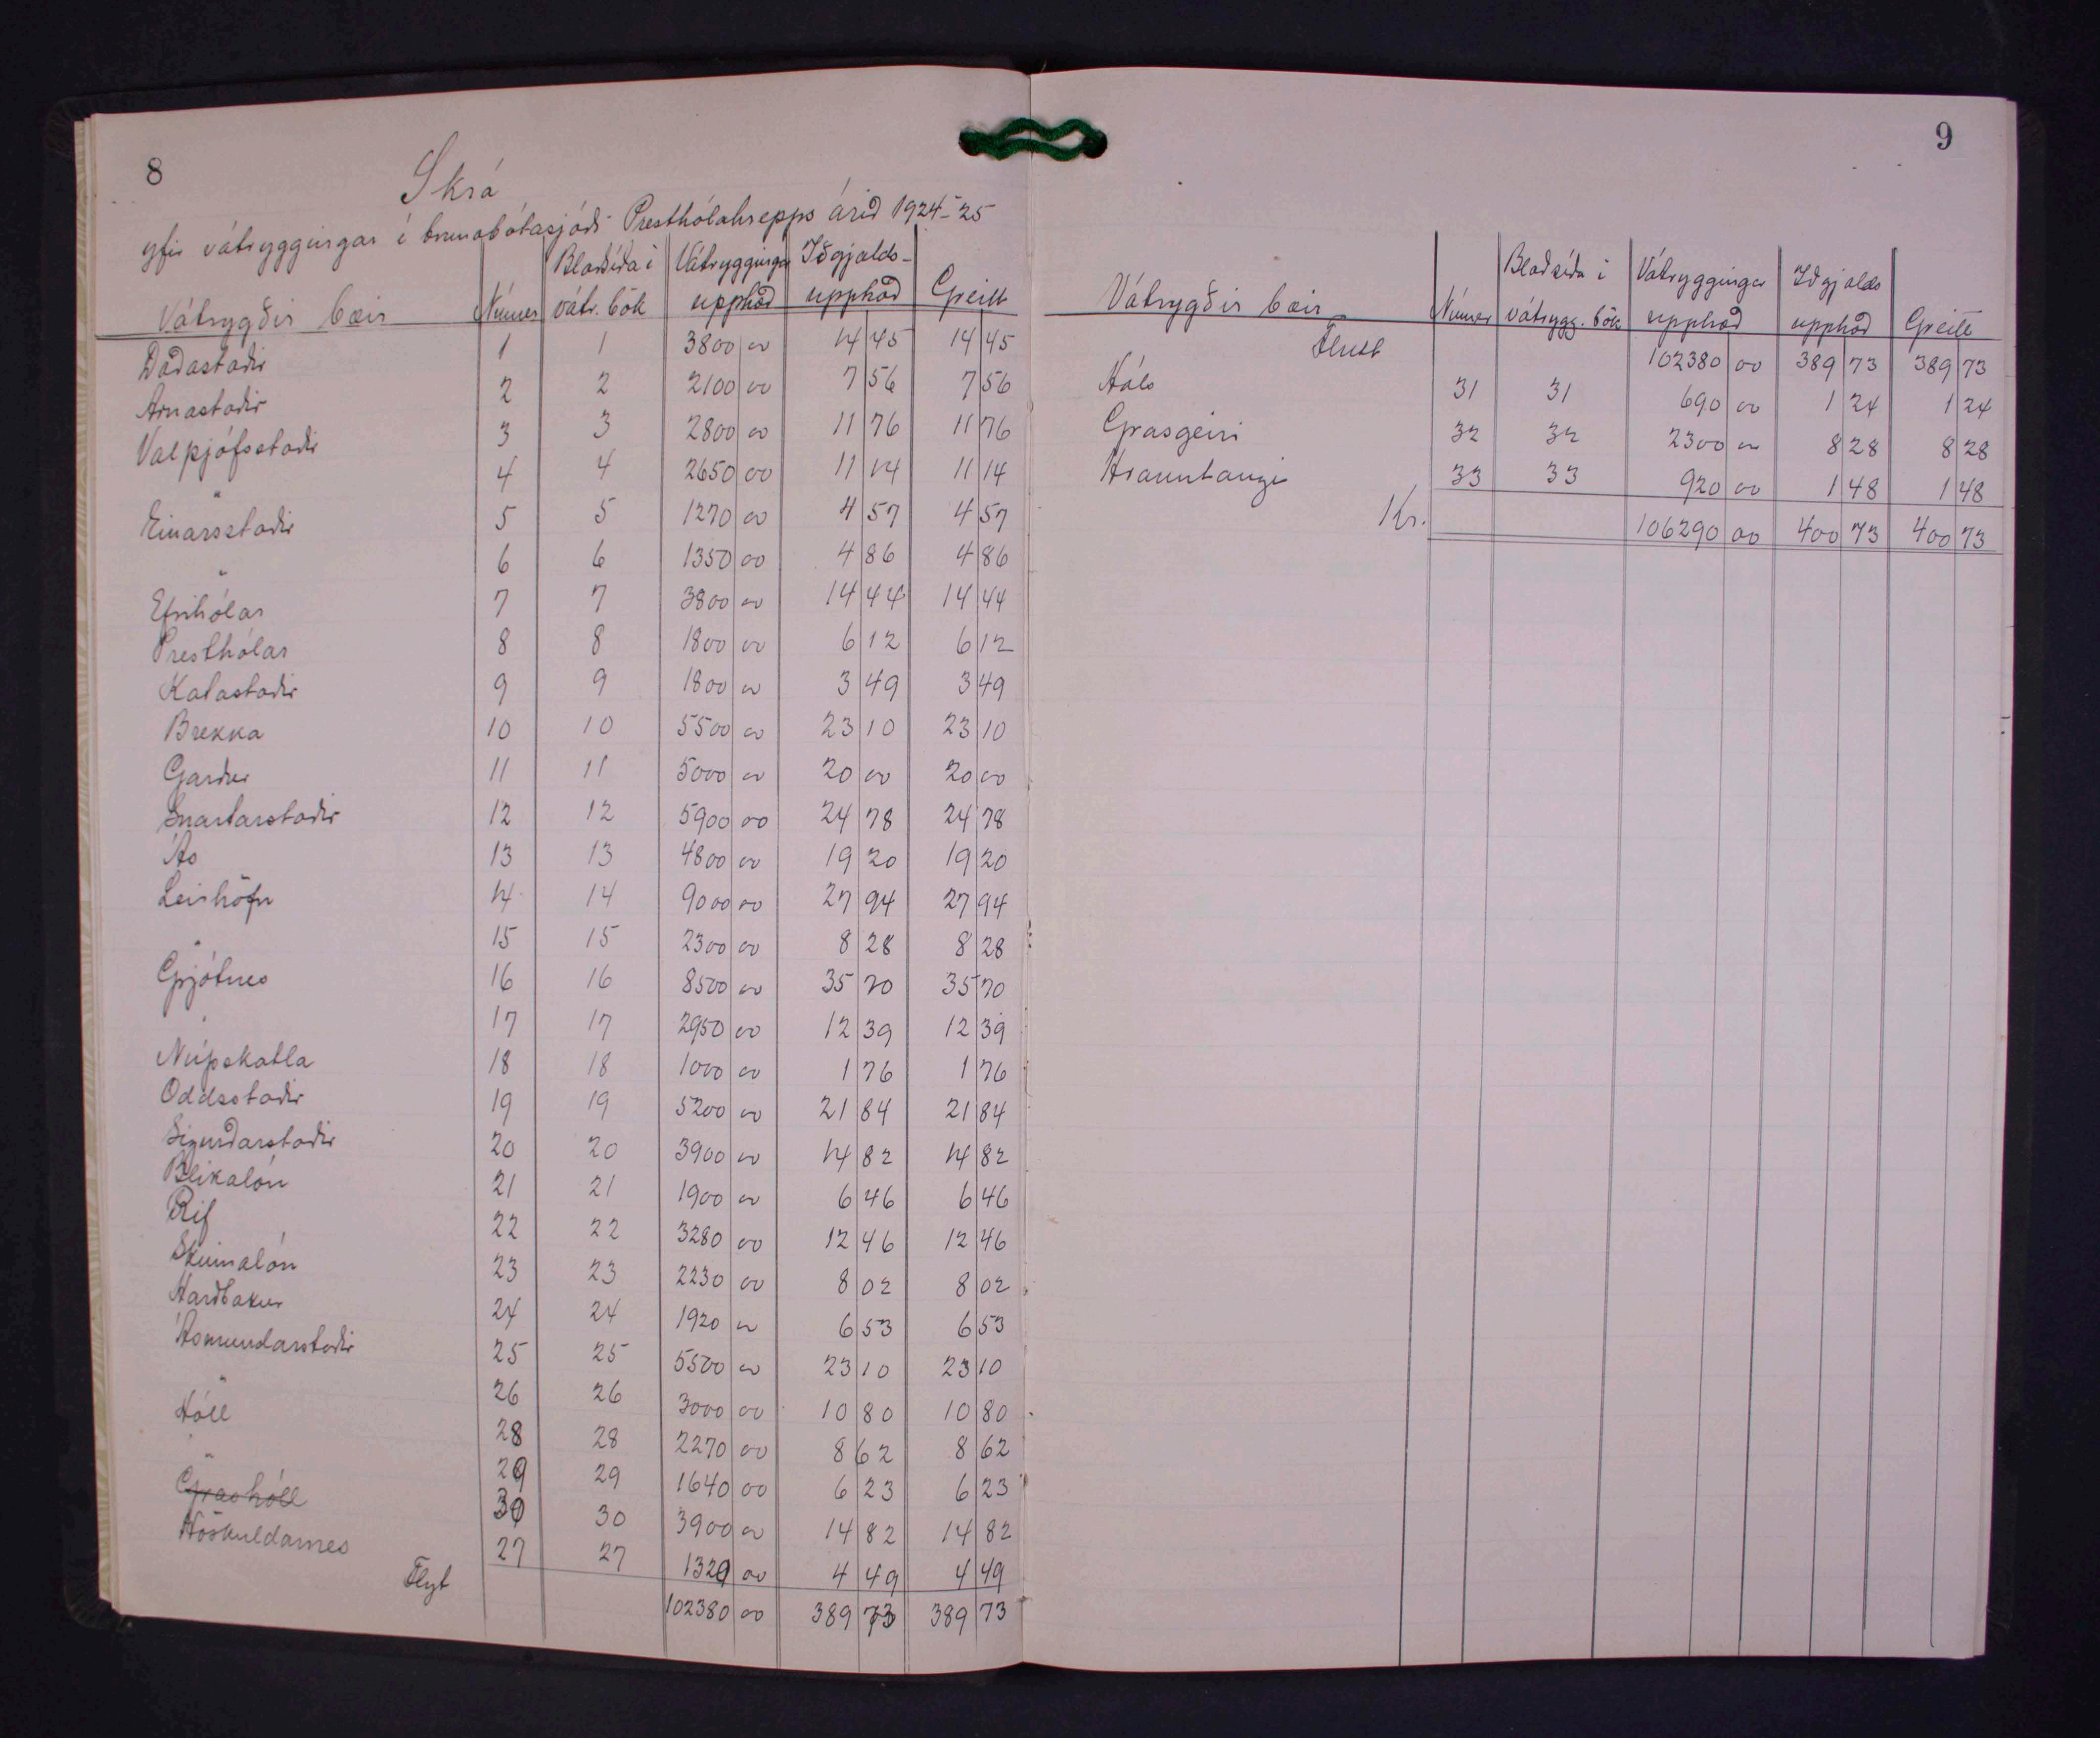 8
Skrá
yfir vátryggingar í brunabótasjóði Presthólahrepps árið 1924-25
Vátrygðir bæir Númer Blaðsíða í vátr. bók Vátryggingar upphæð Iðgjalds- upphæð Greitt
Daðastaðir 1 1 3800 00 14 45 14 45
Arnastaðir 2 2 2100 00 7 56 7 56
Valþjófsstaðir 3 3 2800 00 11 76 11 76
" 4 4 2650 00 11 14 11 14
Einarsstaðir 5 5 1270 00 4 57 4 57
" 6 6 1350 00 4 86 4 86
Efrihólar 7 7 3800 00 14 44 14 44
Presthólar 8 8 1800 00 6 12 6 12
Katastaðir 9 9 1800 00 3 49 3 49
Brekka 10 10 5500 00 23 10 23 10
Garður 11 11 5000 00 20 00 20 00
Snartarstaðir 12 12 5900 00 24 78 24 78
Ás 13 13 4800 00 19 20 19 20
Leirhöfn 14 14 9000 00 27 94 27 94
" 15 15 2300 00 8 28 8 28
Grjótnes 16 16 8500 00 35 70 35 70
" 17 17 2950 00 12 39 12 39
Núpskatla 18 18 1000 00 1 76 1 76
Oddsstaðir 19 19 5200 00 21 84 21 84
Sigurðarstaðir 20 20 3900 00 14 82 14 82
Blikalón 21 21 1900 00 6 46 6 46
Rif 22 22 3280 00 12 46 12 46
Skinnalón 23 23 2230 00 8 02 8 02
Harðbakur 24 24 1920 00 6 53 6 53
Ásmundarstaðir 25 25 5500 00 23 10 23 10
" 26 26 3000 00 10 80 10 80
Hóll 28 28 2270 00 8 62 8 62
" 29 29 1640 00 6 23 6 23
Grashóll 30 30 3900 00 14 82 14 82
Höskuldarnes 27 27 1320 00 4 49 4 49
Flyt 102380 00 389 73 389 73
9
Vátrygðir bæir Númer Blaðsíða í vátrygg. bók Vátryggingar upphæð Iðgjalds upphæð Greitt
Flutt 102380 00 389 73 389 73
Háls 31 31 690 00 1 24 1 24
Grasgeiri 32 32 2300 00 8 28 8 28
Hrauntangi 33 33 920 00 1 48 1 48
Kr. 106290 00 400 73 400 73